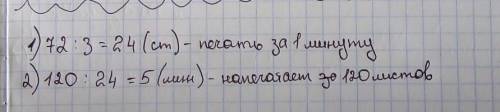 1) 72 : 3 = 24 (ст) – печать за 1 минуту
2) 120 : 24 = 5 (мин) – напечатает 120 листов